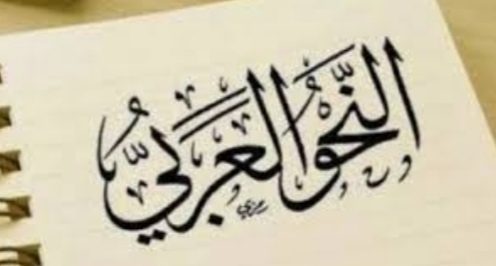 النَّحْوُ الْعَرَبِيُّ